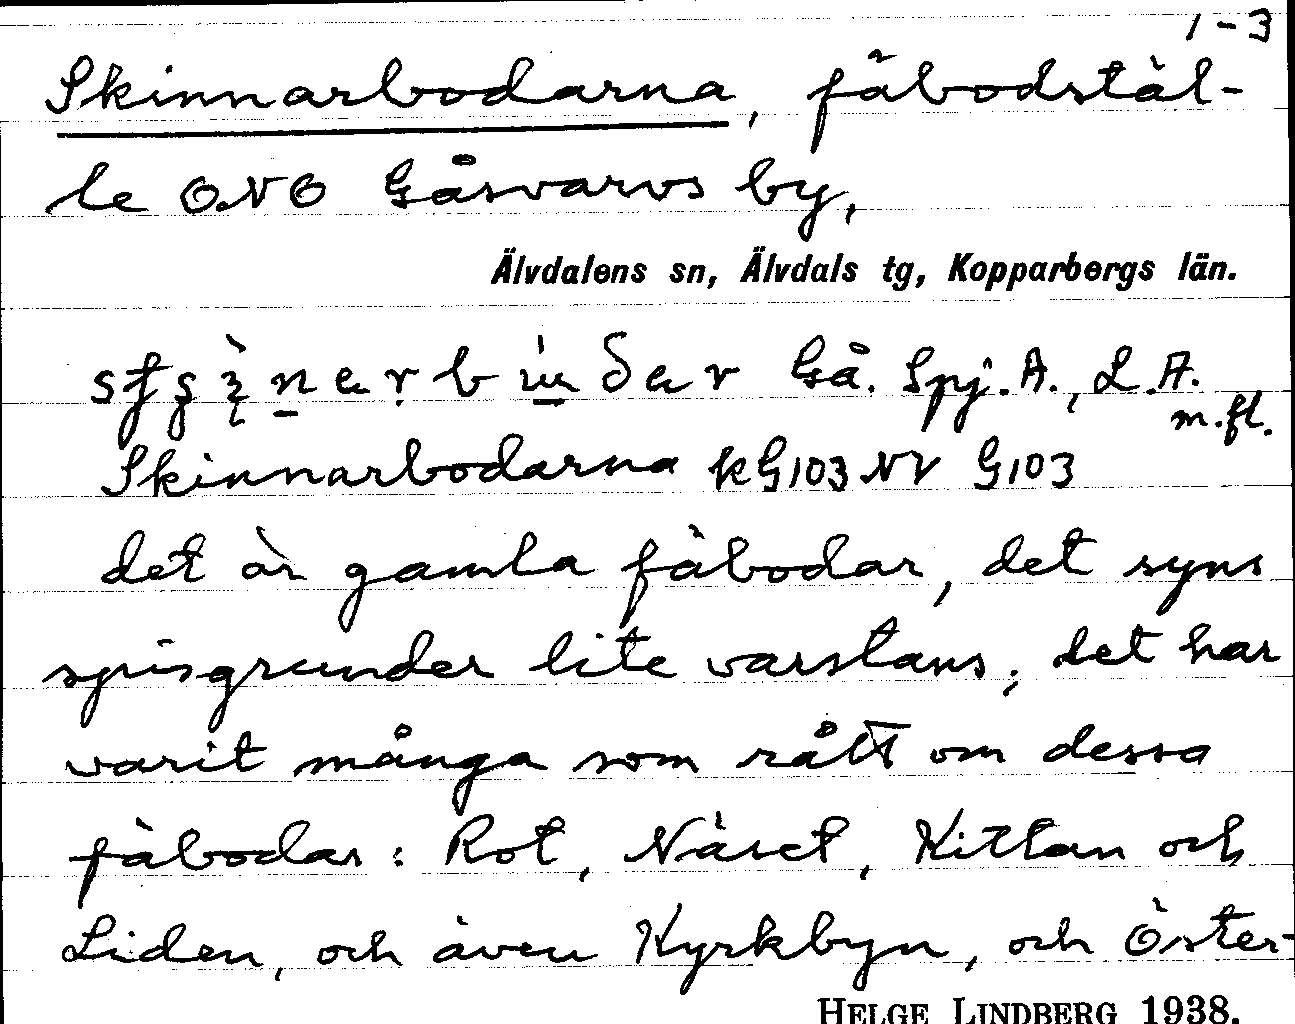 1-3
Skinnarbodarna, fäbodstäl-
le ONO Gåsvarvs by,
Älvdalens sn, Älvdals tg, Kopparbergs län.
Gå. Spj. A., L.A.
m.fl.
Skinnarbodarna kG103 NV G103
det är gamla fäbodar, det syns
spisgrunder lite varstans; det har
varit många som rått om dessa
fäbodar: Rot, Näset, Kittan och
Liden, och även Kyrkbyn, och Öster-
HELGE LINDBERG 1938.